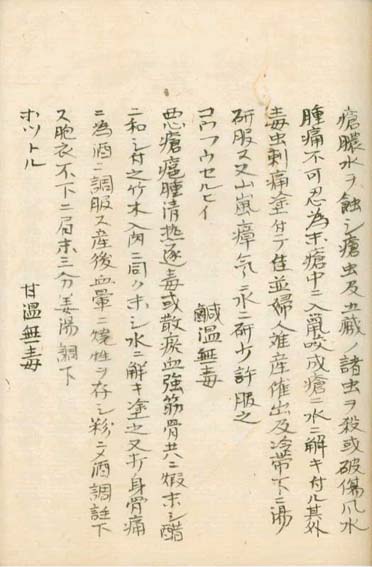 瘡膿水ヲ蝕シ瘡虫及五藏ノ諸虫ヲ殺或破傷風水
腫痛不可忍為末瘡中ニ入鼠咬成瘡ニ水ニ解キ付ル其外
毒虫刺痛塗付テ佳並婦人難産催出及冷帯下ニ湯
研服ス又山嵐瘴気ニ水ニ研少許服之
コウフウセルヒイ 鹹温無毒
悪瘡瘟腫清熱逐毒或散瘀血強筋骨共ニ煆末シ醋
ニ和シ付之竹木入肉ニ同ク末シ水ニ解キ塗之又打身骨痛
ニ為酒ニ調服ス産後血暈ニ燒性ヲ存シ粉ニメ酒調
ス胞衣不下ニ屑末三分姜湯調下
ホツトル 甘温無毒